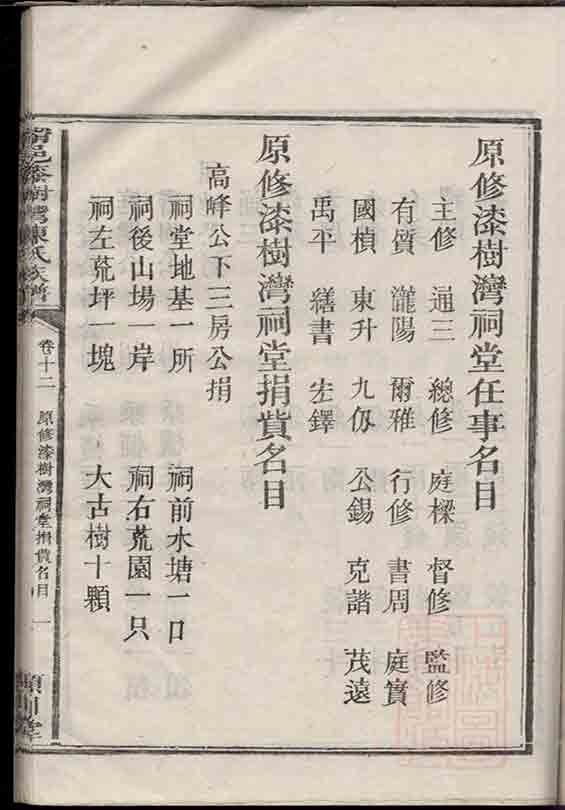 原修漆樹灣祠堂任事名目
主修 通三 總修 庭樑 督修 監修
有質 瀧陽 爾雅 行修 書周 庭實
國楨 東升 九仭 公錫 克諧 茂遠
禹平 繕書 宏鐸
原修漆樹灣祠堂捐貲名目
高峰公下三房公捐
祠堂地基一所 祠前水塘一口
祠後山場一岸 祠右荒園一只
祠左荒坪一塊 大古樹十顆
邑漆樹灣陳氏族譜
卷十二 原修漆樹灣祠堂捐貲名目 一
川堂